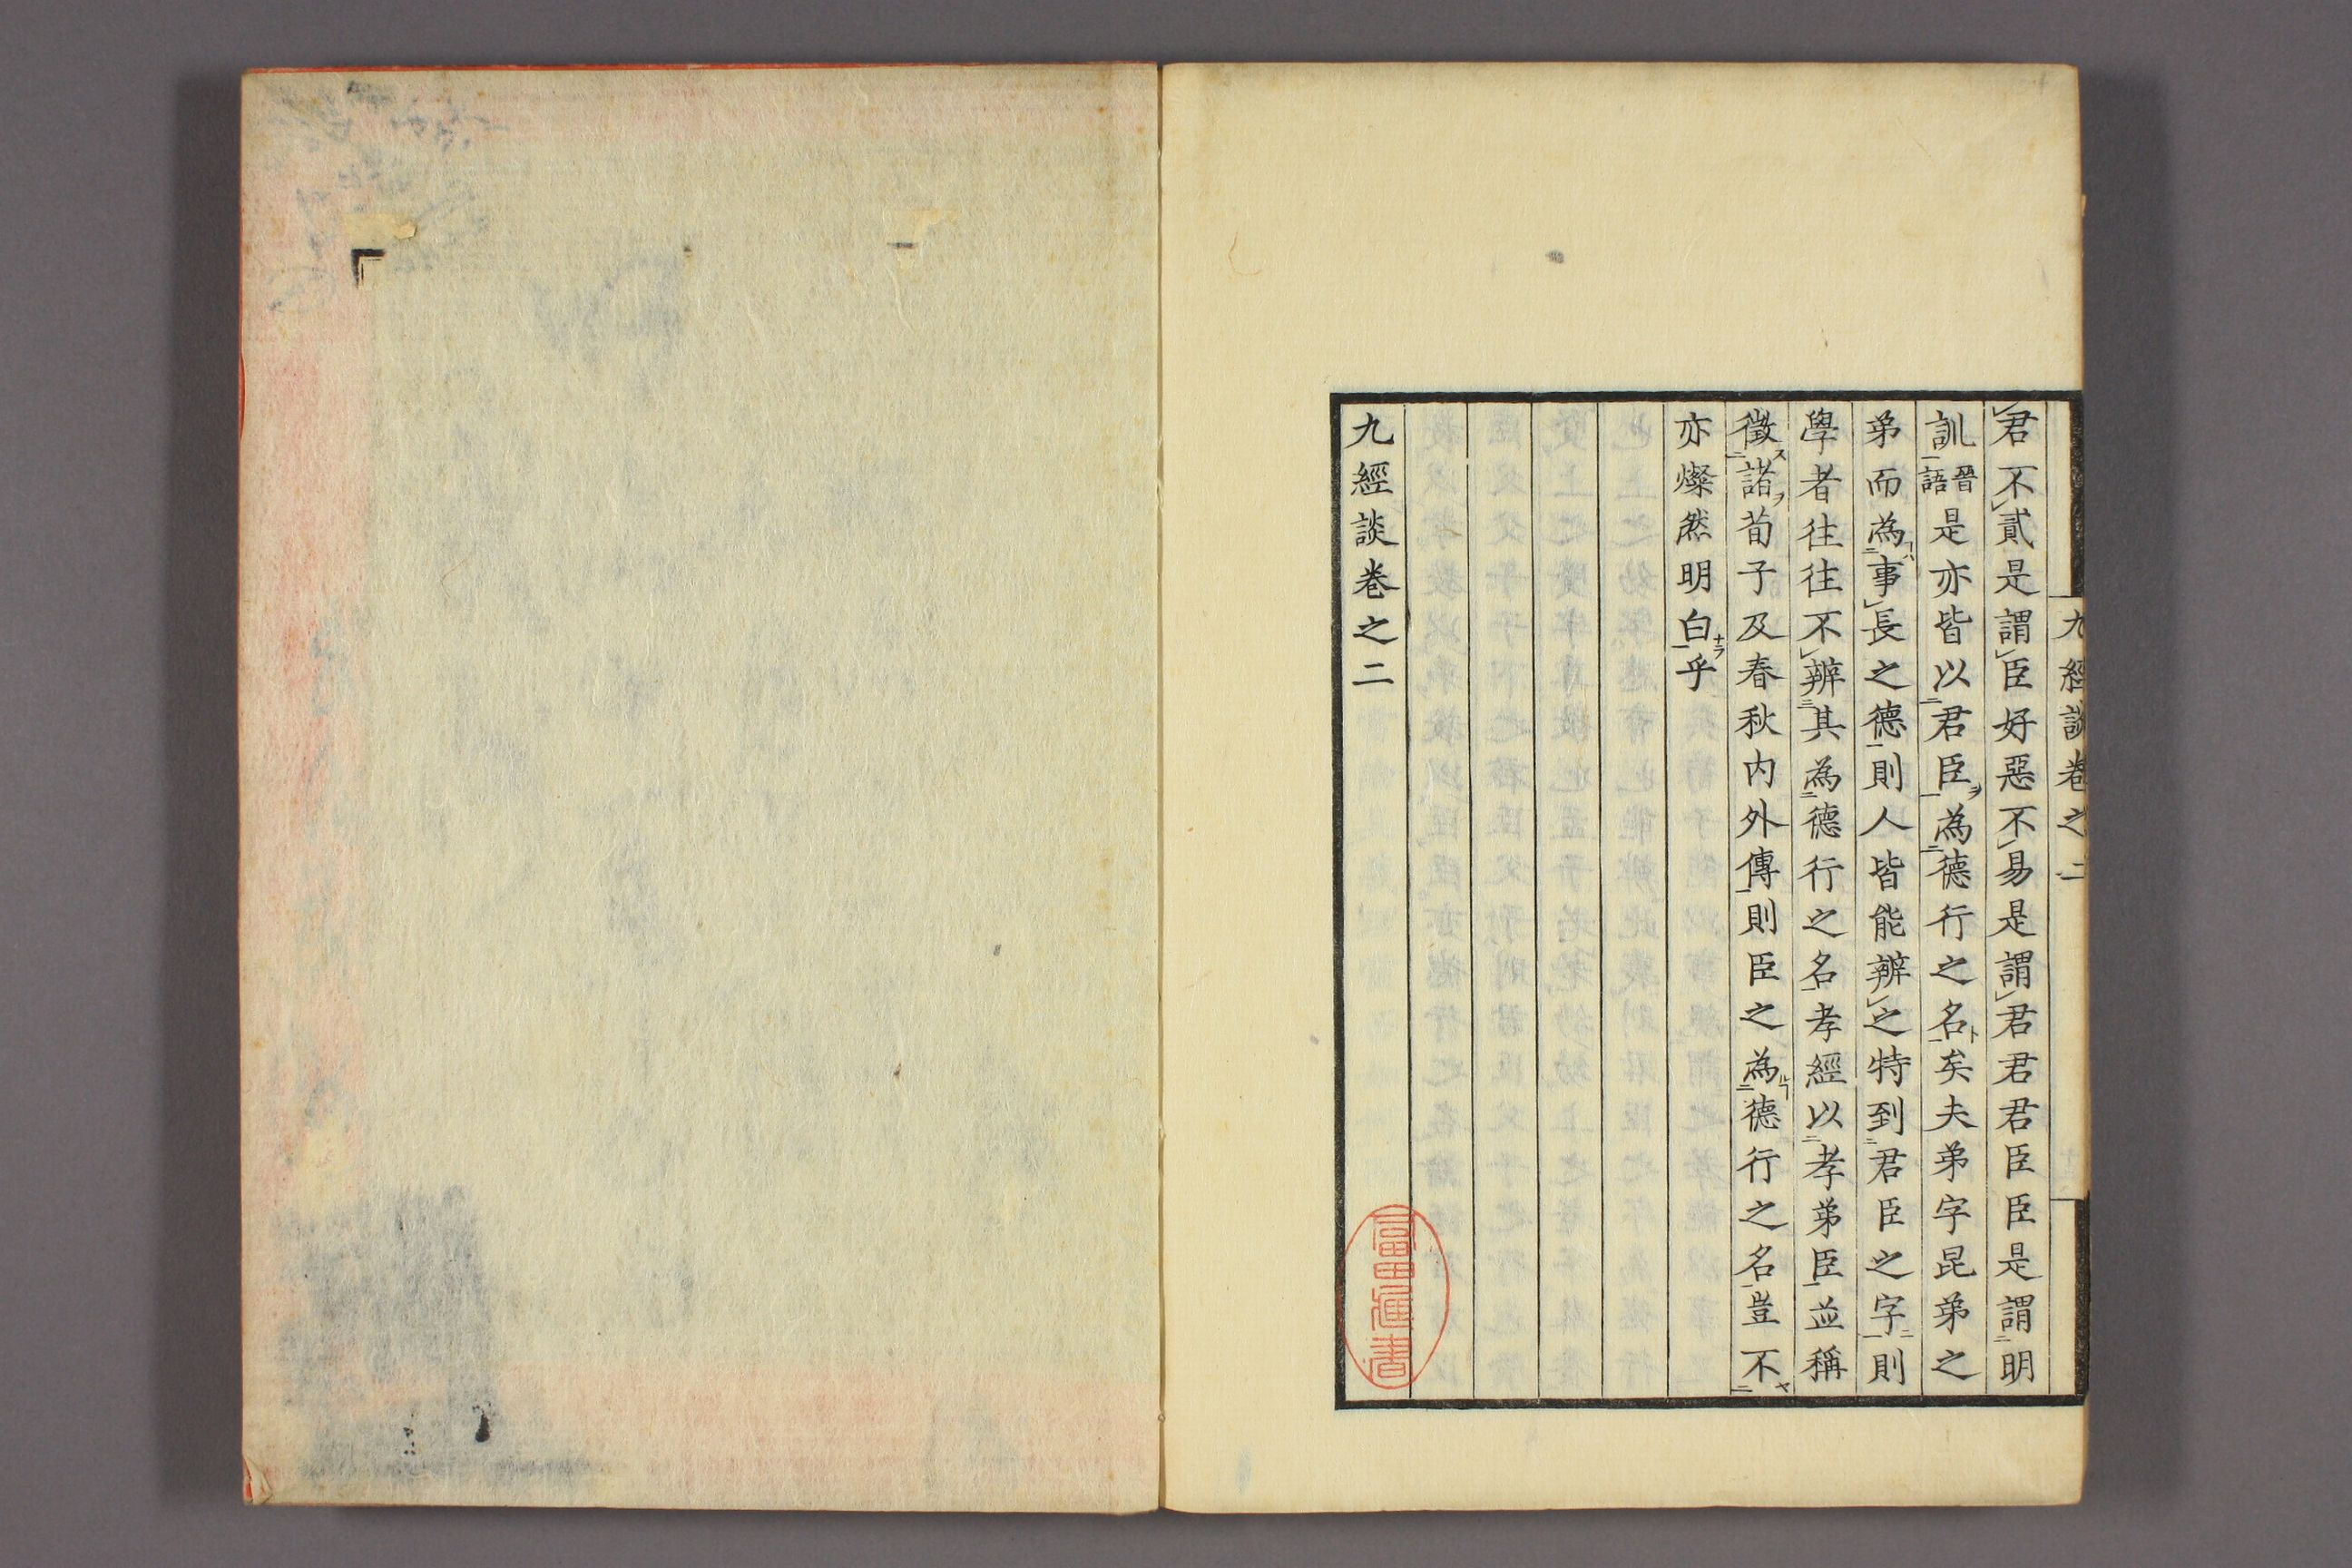 九經談卷之二
君不貳是謂臣好惡不易是謂君君君臣臣是謂明
訓晉語是亦皆以君臣為德行之名矣夫弟字昆弟之
弟而為事長之德則人皆能辨之特到君臣之字則
學者往往不辨其為德行之名孝經以孝弟臣並稱
徵諸荀子及春秋內外傳則臣之為德行之名豈不
亦燦然明白乎
九經談卷之二